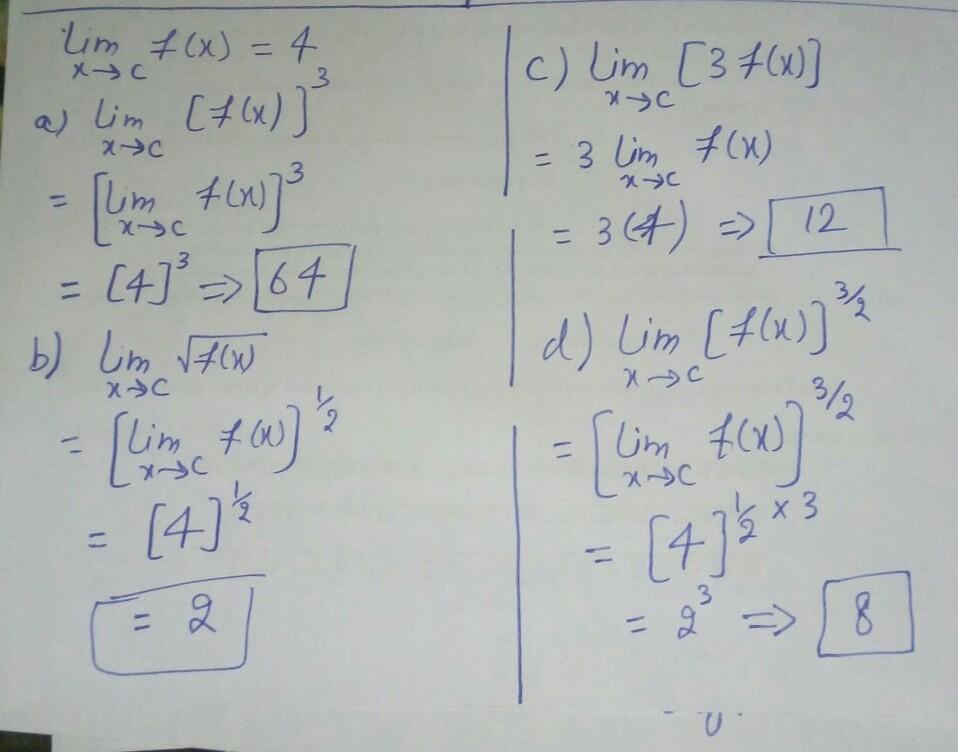 lim x→c f(x) = 4
a) lim x→c [f(x)]³
= [lim x→c f(x)]³
= [4]³ => 64
b) lim x→c √f(x)
= [lim x→c f(x)]^1/2
= [4]^1/2
= 2
c) lim x→c [3 f(x)]
= 3 lim x→c f(x)
= 3(4) => 12
d) lim x→c [f(x)]^3/2
= [lim x→c f(x)]^3/2
= [4]^1/2 × 3
= 2³ => 8